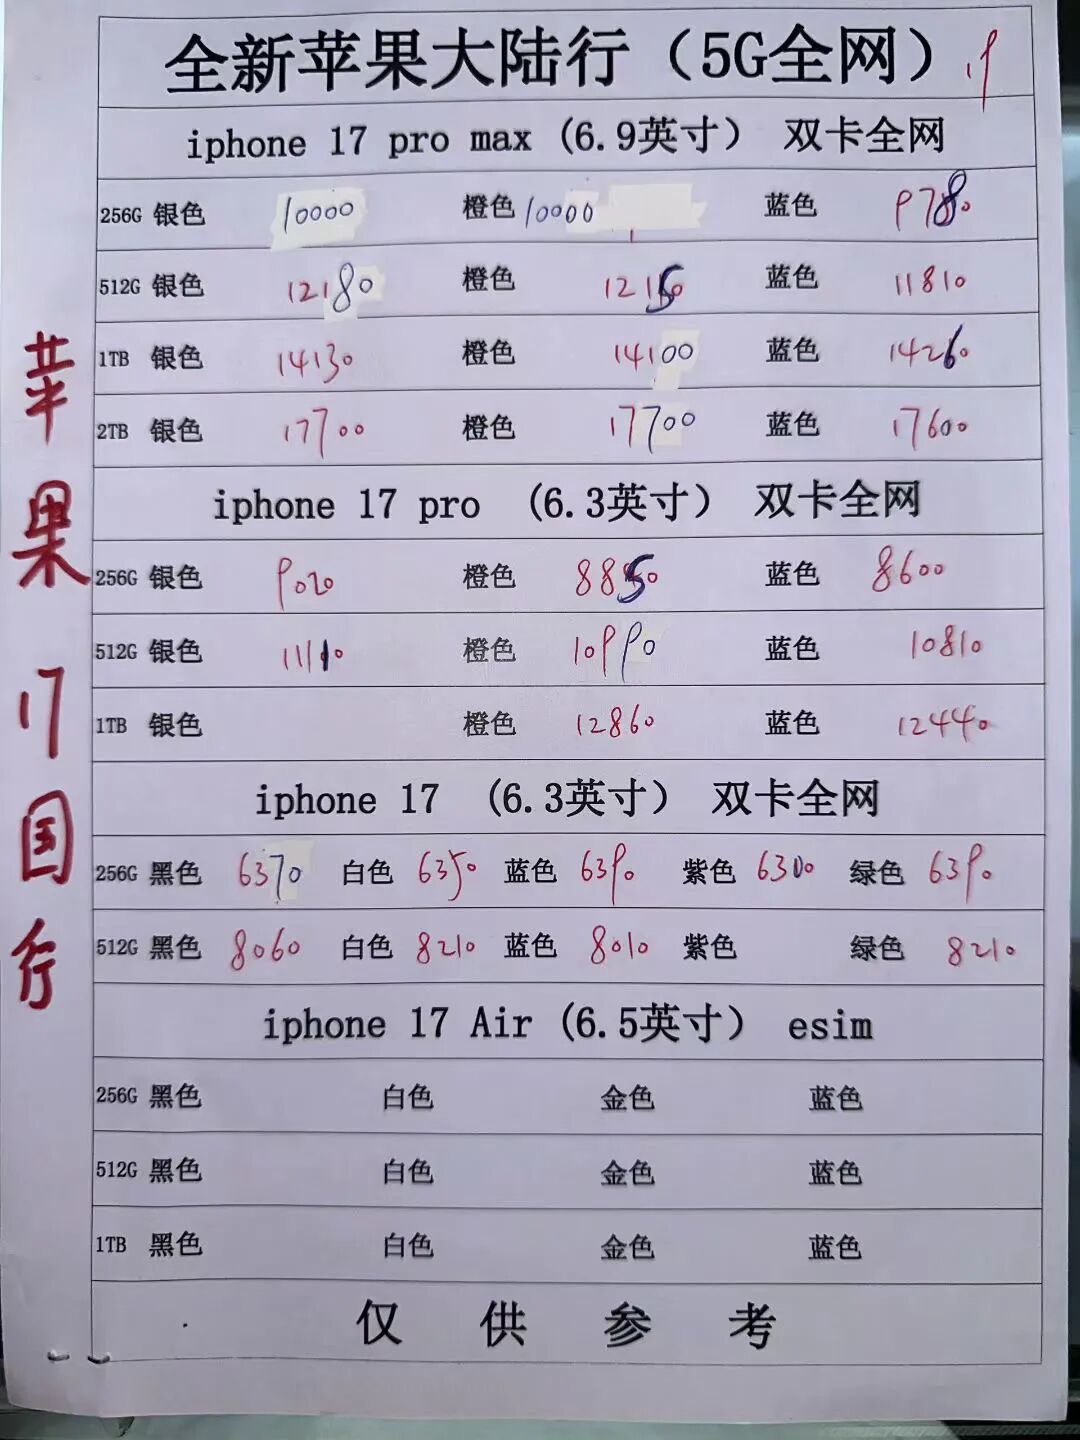 全新苹果大陆行（5G全网）19
iphone 17 pro max (6.9英寸） 双卡全网
256G 银色 10000 橙色 10000 蓝色 9780
512G 银色 12180 橙色 12150 蓝色 11810
1TB 银色 14130 橙色 14100 蓝色 14260
2TB 银色 17700 橙色 17700 蓝色 17600
iphone 17 pro (6.3英寸） 双卡全网
256G 银色 9020 橙色 8850 蓝色 8600
512G 银色 11110 橙色 10990 蓝色 10810
1TB 银色 橙色 12860 蓝色 12440
iphone 17 (6.3英寸） 双卡全网
256G 黑色 6370 白色 6350 蓝色 6390 紫色 6300 绿色 6390
512G 黑色 8060 白色 8210 蓝色 8010 紫色 绿色 8210
iphone 17 Air (6.5英寸） esim
256G 黑色 白色 金色 蓝色
512G 黑色 白色 金色 蓝色
1TB 黑色 白色 金色 蓝色
仅供参考
苹果17国行